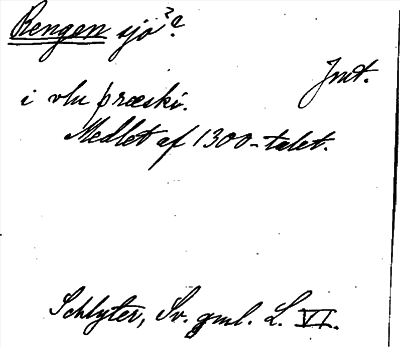 Rengen sjö??
Jmt.
i vlu præski.
Medlet af 1300-talet.
Schlyter, Sv. gml. L. VI.